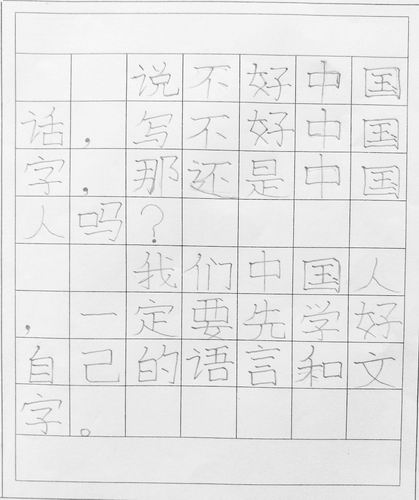 说不好中国
话，写不好中国
字，那还是中国
人吗？
我们中国人
，一定要先学好
自己的语言和文
字。